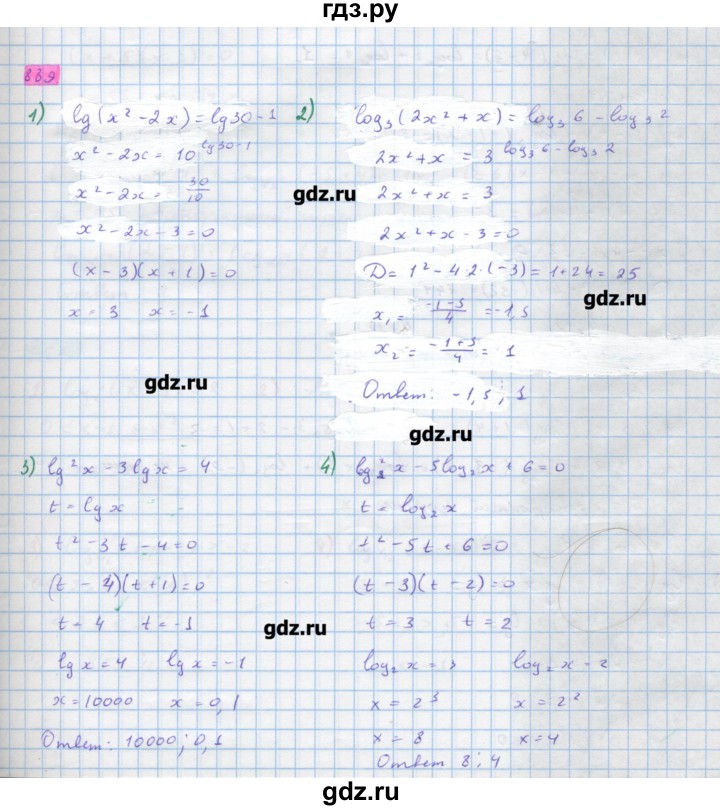 гдз.ру
889
1) lg(x² - 2x) = lg30 - 1
x² - 2x = 10^(lg30-1)
x² - 2x = 30/10
x² - 2x - 3 = 0
(x - 3)(x + 1) = 0
x = 3 x = -1
2) log₃(2x² + x) = log₃6 - log₃2
2x² + x = 3^(log₃6 - log₃2)
2x² + x = 3
2x² + x - 3 = 0
D = 1² - 4 2·(-3) = 1 + 24 = 25
x₁ = (-1-5)/4 = -1,5
x₂ = (-1+5)/4 = 1
Ответ: -1,5; 1
gdz.ru
gdz.ru
gdz.ru
gdz.ru
3) lg²x - 3lgx = 4
t = lgx
t² - 3t - 4 = 0
(t - 4)(t + 1) = 0
t = 4 t = -1
lgx = 4 lgx = -1
x = 10000 x = 0,1
Ответ: 10000; 0,1
4) log₂²x - 5log₂x + 6 = 0
t = log₂x
t² - 5t + 6 = 0
(t - 3)(t - 2) = 0
t = 3 t = 2
log₂x = 3 log₂x = 2
x = 2³ x = 2²
x = 8 x = 4
Ответ 8; 4
gdz.ru
gdz.ru